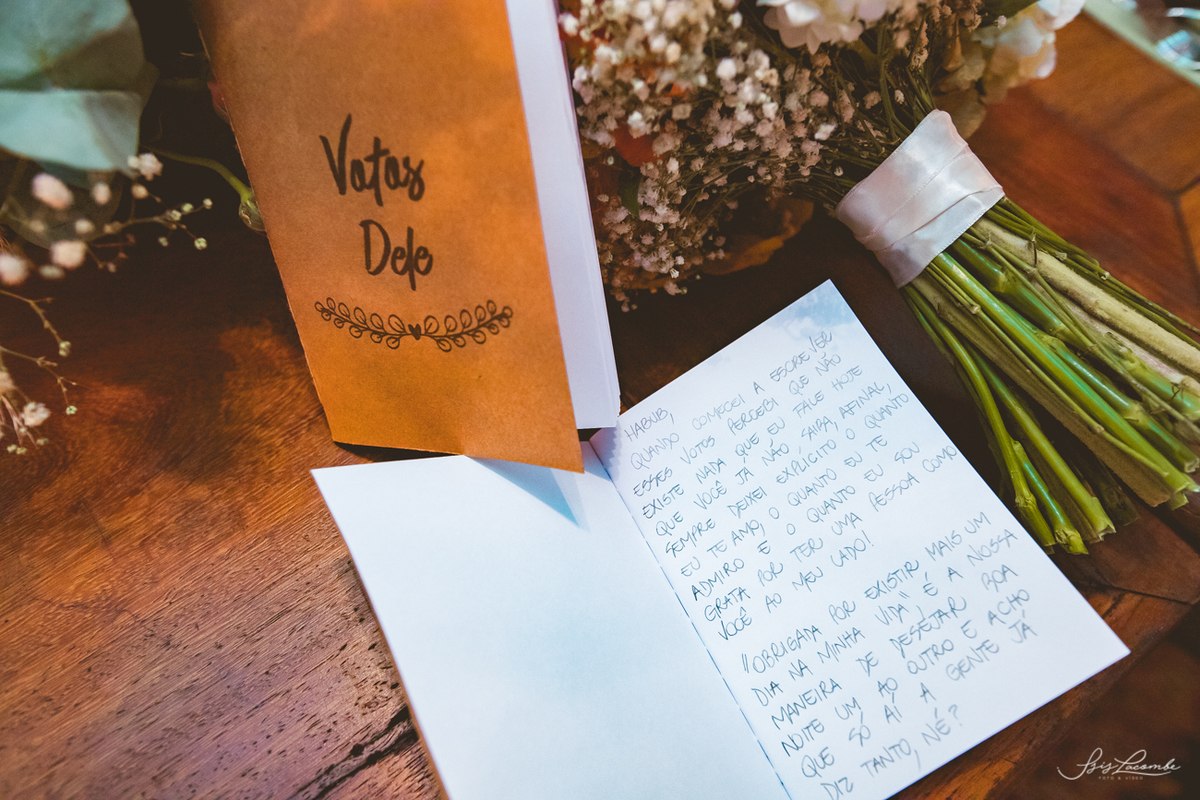 Votos
Dele
HABUB,
QUANDO COMECEI A ESCREVER
ESSES VOTOS PERCEBI QUE NÃO
EXISTE NADA QUE EU FALE HOJE
QUE VOCÊ JÁ NÃO SAIBA, AFINAL,
SEMPRE DEIXEI EXPLÍCITO O QUANTO
EU TE AMO, O QUANTO EU TE
ADMIRO E O QUANTO EU SOU
GRATA POR TER UMA PESSOA COMO
VOCÊ AO MEU LADO!
"OBRIGADA POR EXISTIR MAIS UM
DIA NA MINHA VIDA", É A NOSSA
MANEIRA DE DESEJAR BOA
NOITE UM AO OUTRO E ACHO
QUE SÓ AÍ A GENTE JÁ
DIZ TANTO, NÉ?
Isis Lacombe
FOTO & VIDEO